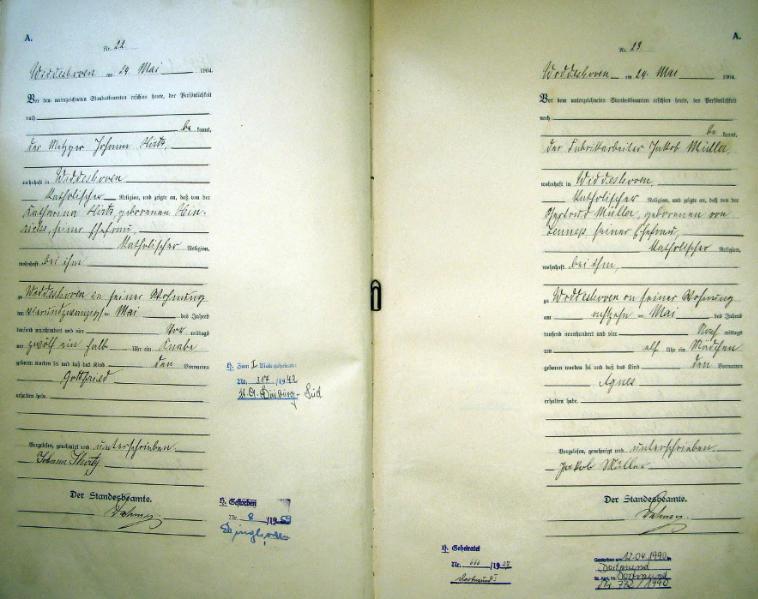 A.
Nr. 22
Widdeshoven am 24 Mai 1904.
Vor dem unterzeichneten Standesbeamten erschien heute, der Persönlichkeit
nach
be kannt,
der Metzger Johann
wohnhaft in Widdeshoven,
Katholischer Religion, und zeigte an, daß von der
Katharina geborenen Hin-
seiner Ehefrau,
Katholischer Religion,
wohnhaft bei ihm
zu Widdeshoven in seiner Wohnung
am vierundzwanzigsten Mai des Jahres
tausend neunhundert und vier Vor mittags
um zwölf ein halb Uhr ein Knabe
geboren worden sei und daß das Kind den Vornamen
Gottfried
erhalten habe.
Vorgelesen, genehmigt und unterschrieben
Johann
Der Standesbeamte.
H. Zum I
Nr. /1942
St. A. Duisburg-Süd
H. Gestorben
Nr. 8 /19
A.
Nr. 23
Widdeshoven am 24. Mai 1904.
Vor dem unterzeichneten Standesbeamten erschien heute, der Persönlichkeit
nach
be kannt,
der Fabrikarbeiter Jakob Müller,
wohnhaft in Widdeshoven,
Katholischer Religion, und zeigte an, daß von der
Gertrud Müller, geborenen von
seiner Ehefrau,
Katholischer Religion,
wohnhaft bei ihm,
zu Widdeshoven in seiner Wohnung
am Mai des Jahres
tausend neunhundert und vier Nach mittags
um elf Uhr ein Mädchen
geboren worden sei und daß das Kind den Vornamen
Agnes
erhalten habe.
Vorgelesen, genehmigt und unterschrieben
Jakob Müller
Der Standesbeamte.
H. Geheiratet
Nr. /19
Dortmund I
Gestorben am 12.04.1990
Dortmund
Dortmund
Nr. 772/1990